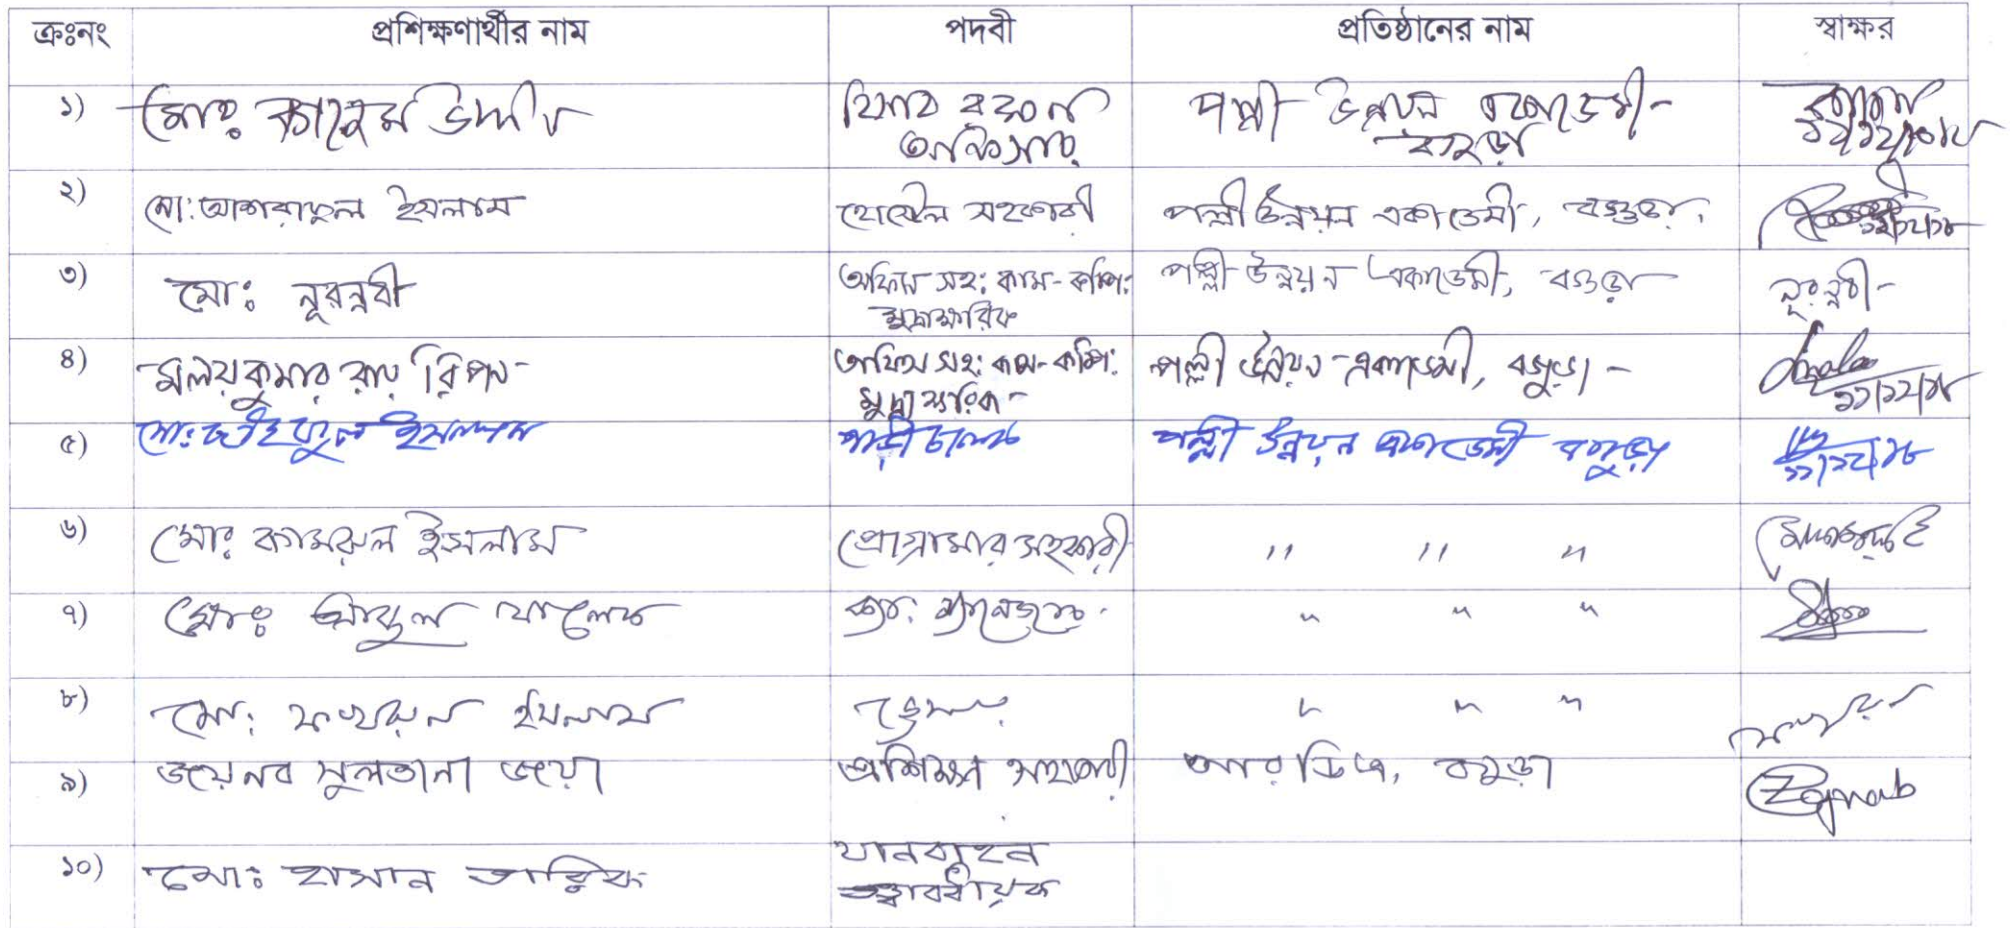 ক্রঃনং প্রশিক্ষণার্থীর নাম পদবী প্রতিষ্ঠানের নাম স্বাক্ষর
১) মোঃ কাসেম উদ্দীন হিসাব রক্ষণ পল্লী উন্নয়ন একাডেমী-
অফিসার বগুড়া
২) মো: আশরাফুল ইসলাম হোস্টেল সহকারী পল্লী উন্নয়ন একাডেমী, বগুড়া।
৩) মোঃ নূরন্নবী অফিস সহ: কাম-কম্পি: পল্লী উন্নয়ন একাডেমী, বগুড়া নূরন্নবী-
মুদ্রাক্ষরিক
৪) মলয় কুমার রায় রিপন- অফিস সহ: কাম-কম্পি: পল্লী উন্নয়ন একাডেমী, বগুড়া-
মুদ্রাক্ষরিক-
৫) মো: ইসলাম গাড়ী চালক পল্লী উন্নয়ন একাডেমী বগুড়া
৬) মোঃ কামরুল ইসলাম প্রোগ্রামার সহকারী " " "
৭) মোঃ আবুল খালেক ম্যানেজার। " " "
৮) মো: ফখরুল ইসলাম " " "
৯) জয়নব সুলতানা জয়া প্রশিক্ষণ সহকারী আরডিএ, বগুড়া Zaynab
১০) মোঃ হাসান তারিক যানবাহন
তত্ত্বাবধায়ক